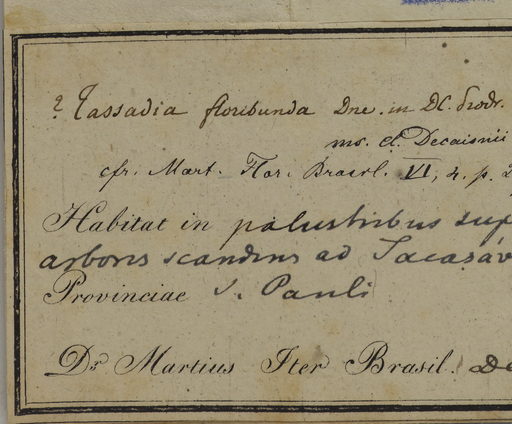 ? Tassadia floribunda Dne. in DC. Prodr.
ms. cl. Decaisnii
cfr. Mart. Flor. Brasil. VI, 4. p. 2
Habitat in palustribus sup
arbores scandens ad Jacasáv
Provinciae S. Pauli
Dr Martius Iter Brasil. De